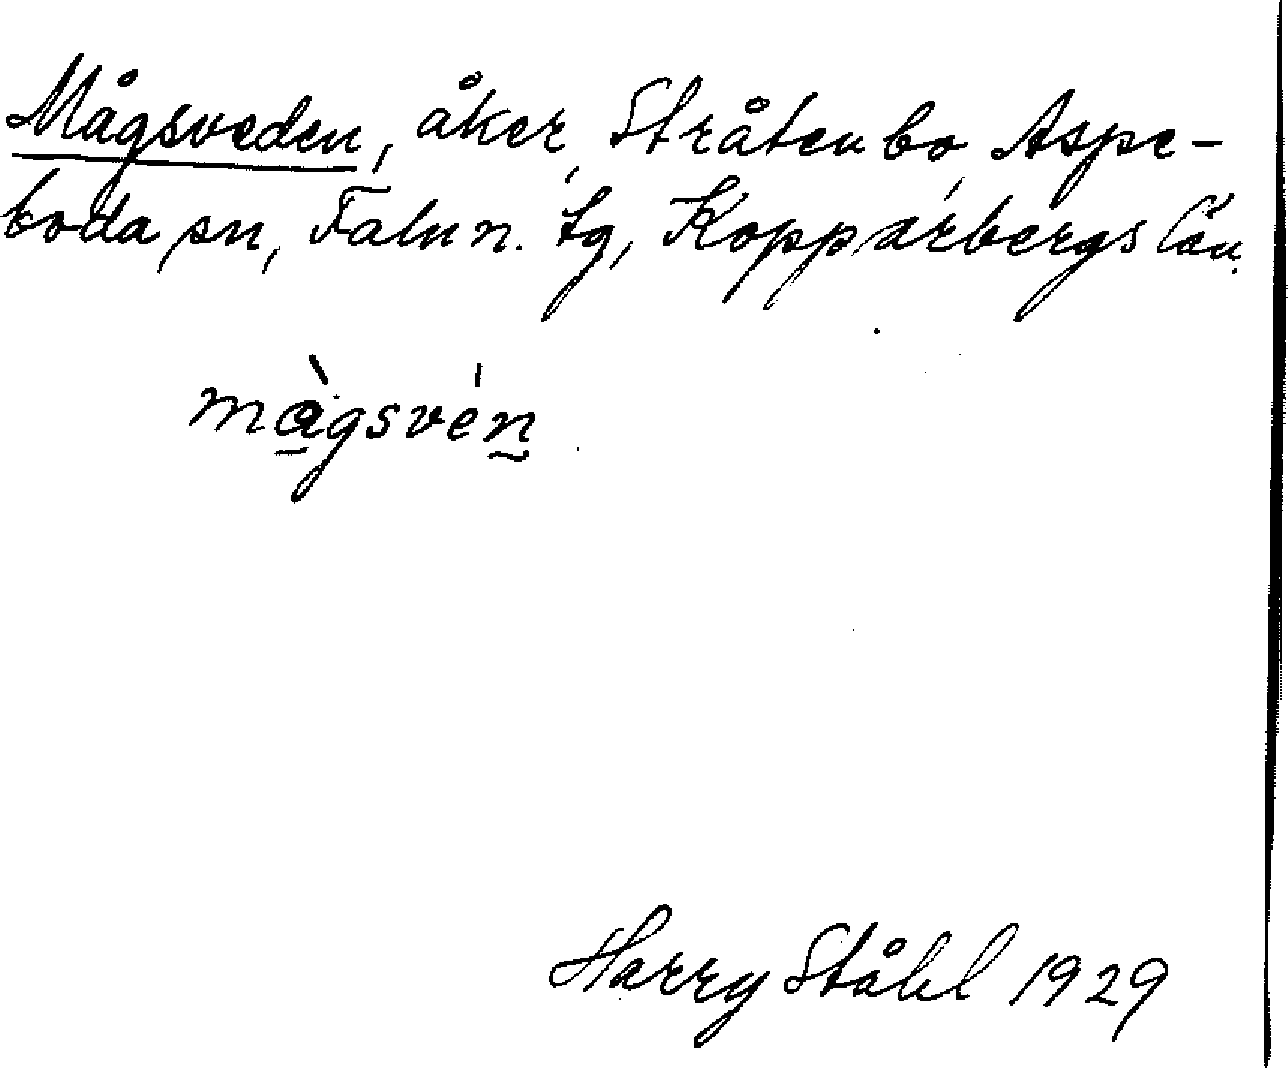 Mågsveden, åker, Stråtenbo, Aspe-
boda sn, Falun. tg, Kopparbergs län.
màgsvén
Harry Ståhl 1929